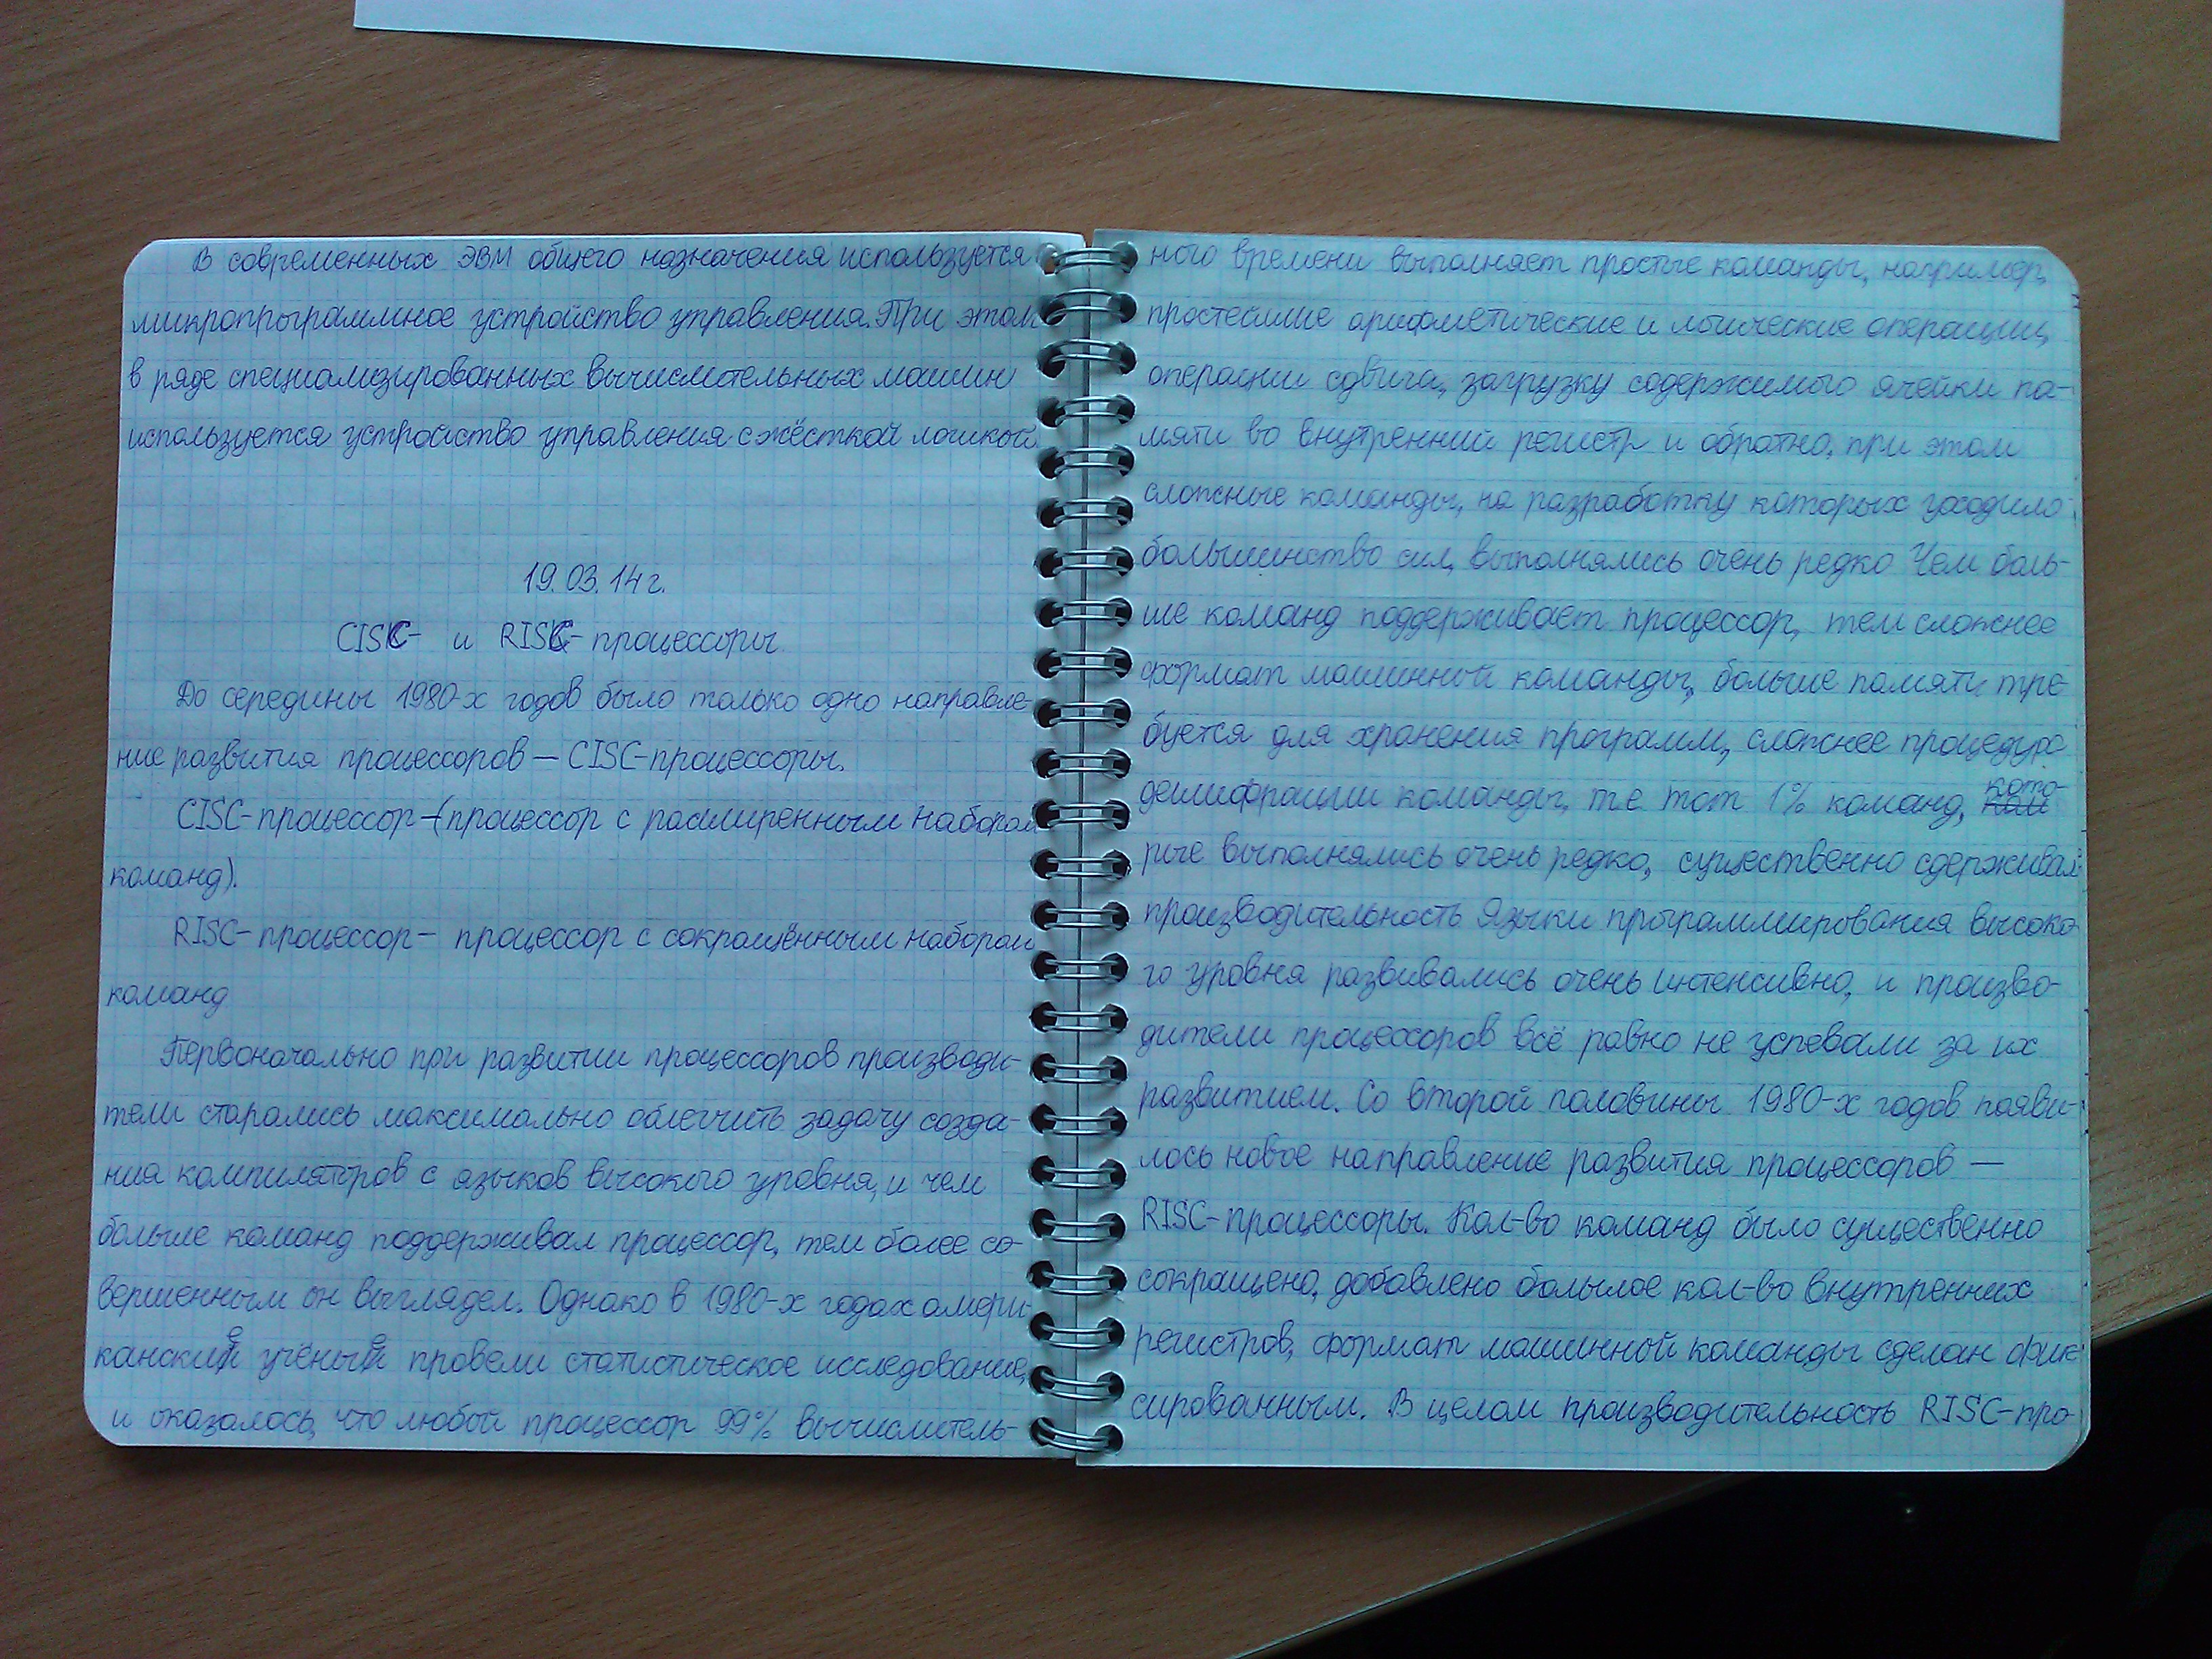 В современных ЭВМ общего назначения используется
микропрограммное устройство управления. При этом
в ряде специализированных вычислительных машин
используется устройство управления с жёсткой логикой.
19.03.14г.
CISC- и RISC- процессоры.
До середины 1980-х годов было только одно направле-
ние развития процессоров — CISC-процессоры.
CISC-процессор-(процессор с расширенным набором
команд).
RISC-процессор- процессор с сокращённым набором
команд
Первоначально при развитии процессоров производи-
тели старались максимально облегчить задачу созда-
ния компиляторов с языков высокого уровня, и чем
больше команд поддерживал процессор, тем более со-
вершенным он выглядел. Однако в 1980-х годах амери-
канские учёные провели статистическое исследование,
и оказалось, что любой процессор 99% вычислитель-
ного времени выполняет простые команды, например,
простейшие арифметические и логические операции,
операции сдвига, загрузку содержимого ячейки па-
мяти во внутренний регистр и обратно, при этом
сложные команды, на разработку которых уходило
большинство сил, выполнялись очень редко Чем боль-
ше команд поддерживает процессор, тем сложнее
формат машинной команды, больше памяти тре
буется для хранения программ, сложнее процедура
дешифрации команды, те тот 1% команд, кото-
рые выполнялись очень редко, существенно сдерживал
производительность Языки программирования высоко-
го уровня развивались очень интенсивно, и произво-
дители процессоров всё равно не успевали за их
развитием. Со второй половины 1980-х годов появи-
лось новое направление развития процессоров —
RISC-процессоры. Кол-во команд было существенно
сокращено, добавлено большое кол-во внутренних
регистров, формат машинной команды сделан фик-
сированным. В целом производительность RISC-про-